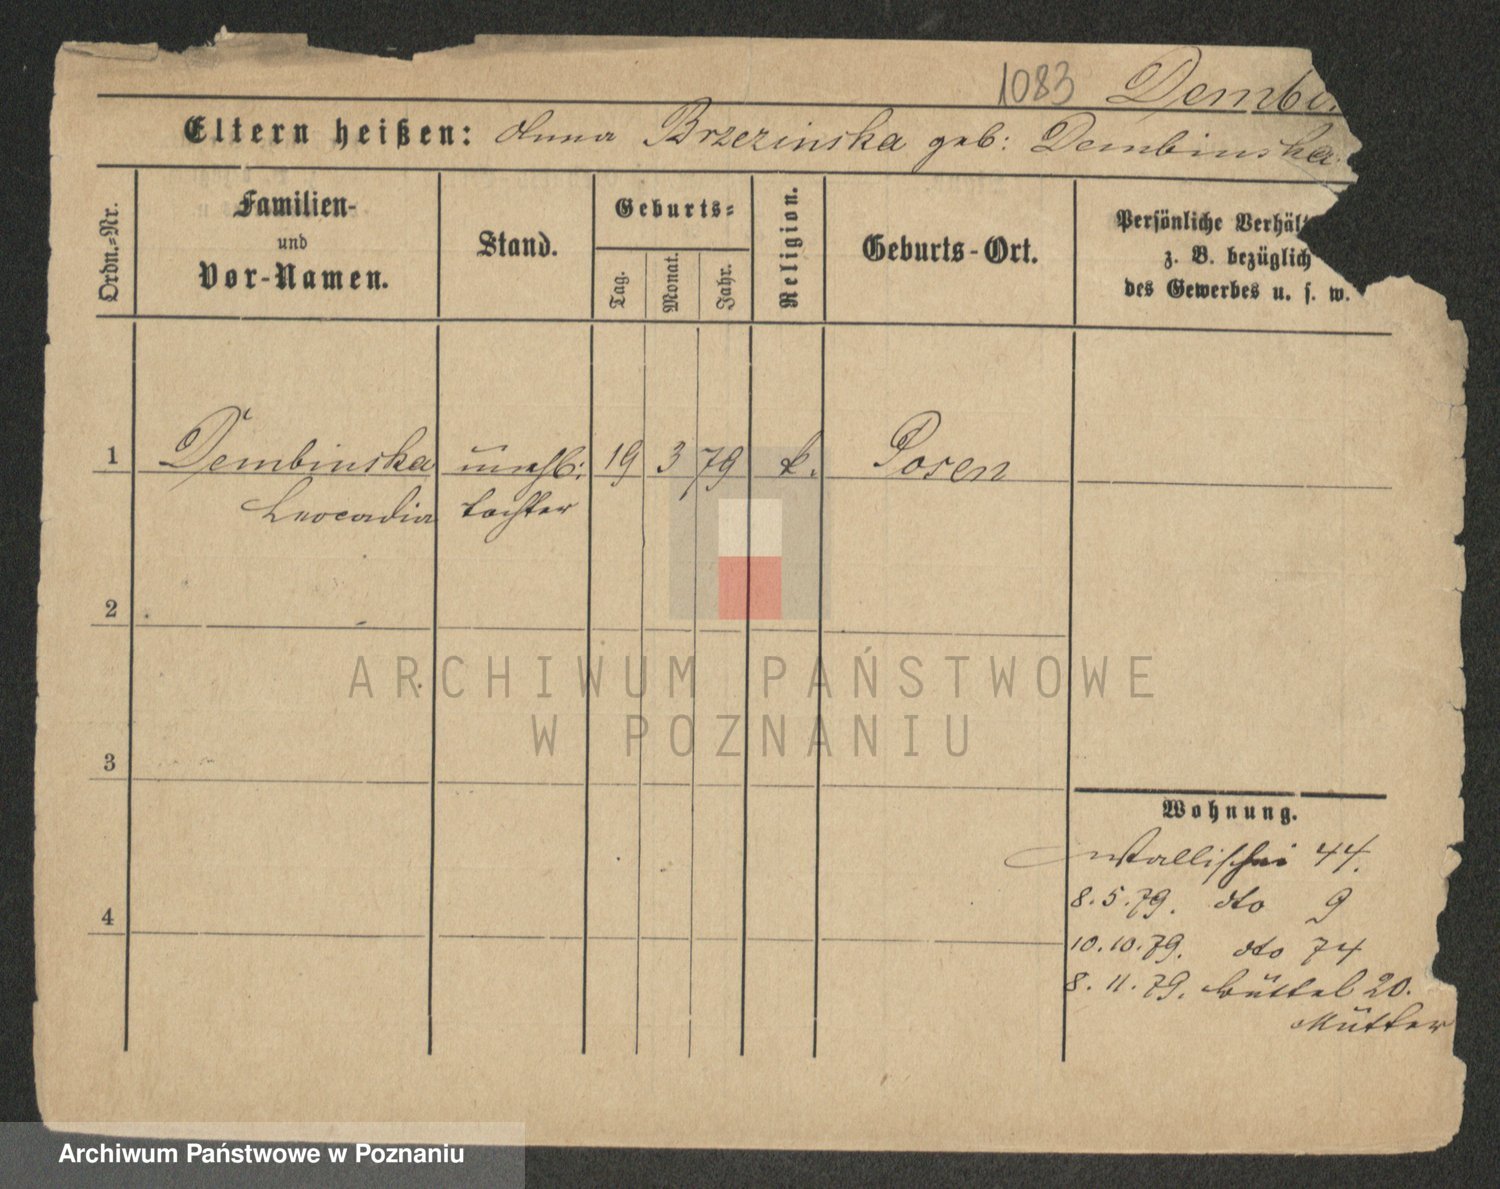 1083 Dembi
Eltern heißen: Anna Brzezinska geb: Dembinska
Ordn.=Nr.
Familien-
und
Vor-Namen.
Stand.
Geburts=
Tag.
Monat.
Jahr.
Religion.
Geburts-Ort.
Persönliche Verhäl
z. B. bezüglich
des Gewerbes u. s. w.
1 Dembinska unehl: 19 3 79 k. Posen
Leocadia Tochter
2
3
4
Wohnung.
Wallischei 44.
8.5.79. dto 9
10.10.79. dto 74
8.11.79. Büttel 20.
Mutter
ARCHIWUM PAŃSTWOWE
W POZNANIU
Archiwum Państwowe w Poznaniu